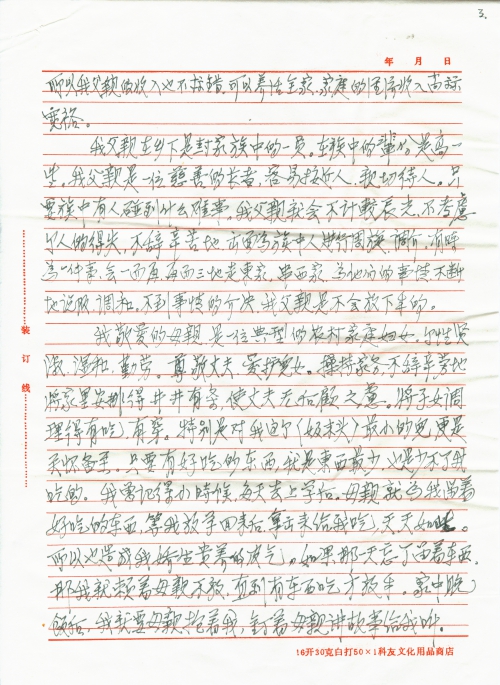 3.
年 月 日
所以我父亲的收入也不算错,可以养活全家,家庭的经济收入尚称
宽裕。
我父亲在乡下是封家族中的一员。在族中的輩份是高一
輩。我父亲是一位慈善的长者,容易接近人,热切待人。只
要族中有人碰到什么难事,我父亲就会不计较辰光,不考虑
个人的得失,不辞辛苦地 为族中人进行周旋,调介。有時
为一件事,会一而再,再而三地走東家,奔西家,为他们的事情不断
地说服,调和。不到事情的介决,我父亲是不会放下手的。
我敬爱的母亲,是一位典型的农村家庭妇女,个性贤
淑,温和,勤劳。尊敬丈夫,爱护儿女。操持家务不辞辛劳地
将家里安排得井井有条,使丈夫无何顾之憂。将子女调
理得有吃,有穿。特别是对我这个(奶末头)最小的儿更是
关怀备至。只要有好吃的东西,我是東西最少,也是少不了我
吃的。我曾记得小時候,每天去上学后,母亲就为我留着
好吃的东西,等我放学回来后,拿出来给我吃,天天如此。
所以也造成我娇生贯养的皮气。如果那一天忘了留着东西,
那我就赖着母亲不放,直到有东西吃,才放手。家中晚
饭后,我就要母亲抱着我,钉着母亲讲故事给我听。
装 订 线
16开30克白打50×1科友文化用品商店